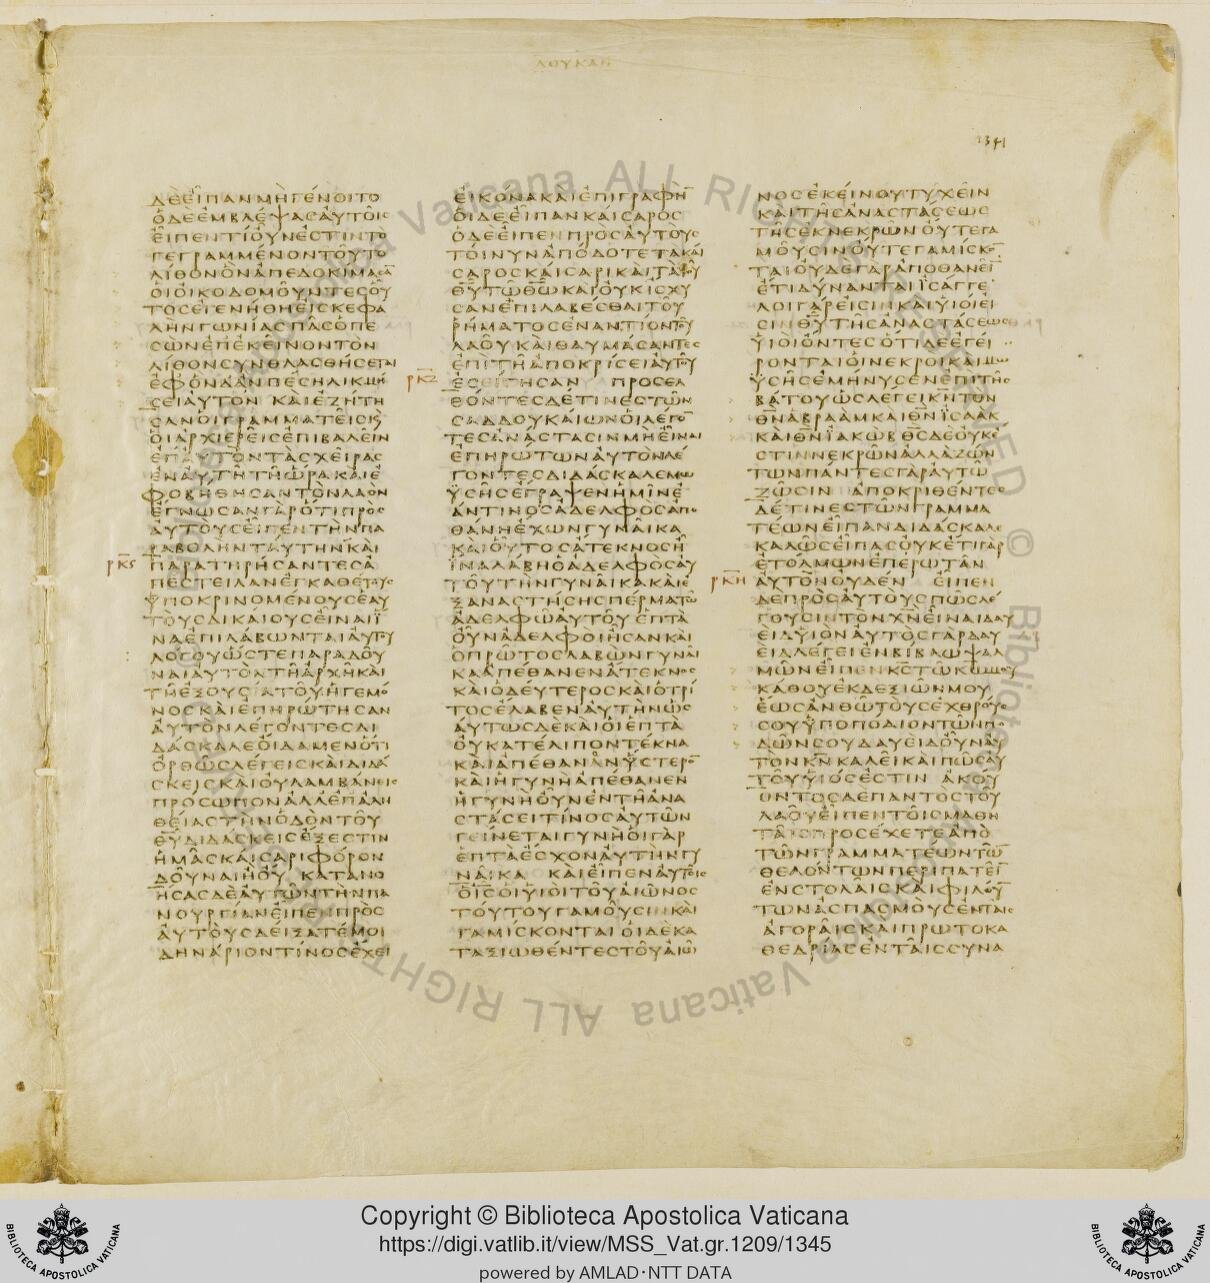 ΛΟΥΚΑΝ
1341
ΔΕΕΙΠΑΝΜΗΓΕΝΟΙΤΟ
ΟΔΕΕΜΒΛΕΨΑΣΑΥΤΟΙΣ
ΕΙΠΕΝΤΙΟΥΝΕΣΤΙΝΤΟ
ΓΕΓΡΑΜΜΕΝΟΝΤΟΥΤΟ
ΛΙΘΟΝΟΝΑΠΕΔΟΚΙΜΑΣΑ̅
ΟΙΟΙΚΟΔΟΜΟΥΝΤΕΣΟΥ
ΤΟΣΕΓΕΝΗΘΗΕΙΣΚΕΦΑ
ΛΗΝΓΩΝΙΑΣΠΑΣΟΠΕ
ΣΩΝΕΠΕΚΕΙΝΟΝΤΟΝ
ΛΙΘΟΝΣΥΝΘΛΑΣΘΗΣΕΤΑΙ
ΕΦΟΝΔΑΝΠΕΣΗΛΙΚΜΗ
ΣΕΙΑΥΤΟΝ ΚΑΙΕΖΗΤΗ
ΣΑΝΟΙΓΡΑΜΜΑΤΕΙΣΚΑΙ
ΟΙΑΡΧΙΕΡΕΙΣΕΠΙΒΑΛΕΙΝ
ΕΠΑΥΤΟΝΤΑΣΧΕΙΡΑΣ
ΕΝΑΥΤΗΤΗΩΡΑΚΑΙΕ
ΦΟΒΗΘΗΣΑΝΤΟΝΛΑΟΝ
ΕΓΝΩΣΑΝΓΑΡΟΤΙΠΡΟΣ
ΑΥΤΟΥΣΕΙΠΕΝΤΗΝΠΑ
ΡΑΒΟΛΗΝΤΑΥΤΗΝΚΑΙ
ΡΚϚ ΠΑΡΑΤΗΡΗΣΑΝΤΕΣΑ
ΠΕΣΤΕΙΛΑΝΕΓΚΑΘΕΤΟΥΣ
ΥΠΟΚΡΙΝΟΜΕΝΟΥΣΕΑΥ
ΤΟΥΣΔΙΚΑΙΟΥΣΕΙΝΑΙΪ
ΝΑΕΠΙΛΑΒΩΝΤΑΙΑΥΤΟΥ
ΛΟΓΟΥΩΣΤΕΠΑΡΑΔΟΥ
ΝΑΙΑΥΤΟΝΤΗΑΡΧΗΚΑΙ
ΤΗΕΞΟΥΣΙΑΤΟΥΗΓΕΜΟ
ΝΟΣΚΑΙΕΠΗΡΩΤΗΣΑΝ
ΑΥΤΟΝΛΕΓΟΝΤΕΣΔΙ
ΔΑΣΚΑΛΕΟΙΔΑΜΕΝΟΤΙ
ΟΡΘΩΣΛΕΓΕΙΣΚΑΙΔΙΔΑ
ΣΚΕΙΣΚΑΙΟΥΛΑΜΒΑΝΕΙΣ
ΠΡΟΣΩΠΟΝΑΛΛΕΠΑΛΗ
ΘΕΙΑΣΤΗΝΟΔΟΝΤΟΥ
Θ̅Υ̅ΔΙΔΑΣΚΕΙΣΕΞΕΣΤΙΝ
ΗΜΑΣΚΑΙΣΑΡΙΦΟΡΟΝ
ΔΟΥΝΑΙΗΟΥ ΚΑΤΑΝΟ
ΗΣΑΣΔΕΑΥΤΩΝΤΗΝΠΑ
ΝΟΥΡΓΙΑΝΕΙΠΕΝΠΡΟΣ
ΑΥΤΟΥΣΔΕΙΞΑΤΕΜΟΙ
ΔΗΝΑΡΙΟΝΤΙΝΟΣΕΧΕΙ
ΕΙΚΟΝΑΚΑΙΕΠΙΓΡΑΦΗ̅
ΟΙΔΕΕΙΠΑΝΚΑΙΣΑΡΟΣ
ΟΔΕΕΙΠΕΝΠΡΟΣΑΥΤΟΥΣ
ΤΟΙΝΥΝΑΠΟΔΟΤΕΤΑΚΑΙ
ΣΑΡΟΣΚΑΙΣΑΡΙΚΑΙΤΑΤΟΥ
Θ̅Υ̅ΤΩΘ̅Ω̅ΚΑΙΟΥΚΙΣΧΥ
ΣΑΝΕΠΙΛΑΒΕΣΘΑΙΤΟΥ
ΡΗΜΑΤΟΣΕΝΑΝΤΙΟΝΤΟΥ
ΛΑΟΥΚΑΙΘΑΥΜΑΣΑΝΤΕΣ
ΕΠΙΤΗΑΠΟΚΡΙΣΕΙΑΥΤΟΥ
ΡΚΖ ΕΣΕΙΓΗΣΑΝ ΠΡΟΣΕΛ
ΘΟΝΤΕΣΔΕΤΙΝΕΣΤΩΝ
ΣΑΔΔΟΥΚΑΙΩΝΟΙΛΕΓΟ̅
ΤΕΣΑΝΑΣΤΑΣΙΝΜΗΕΙΝΑΙ
ΕΠΗΡΩΤΩΝΑΥΤΟΝΛΕ
ΓΟΝΤΕΣΔΙΔΑΣΚΑΛΕΜΩ
ΫΣΗΣΕΓΡΑΨΕΝΗΜΙΝΕ
ΑΝΤΙΝΟΣΑΔΕΛΦΟΣΑΠΟ
ΘΑΝΗΕΧΩΝΓΥΝΑΙΚΑ
ΚΑΙΟΥΤΟΣΑΤΕΚΝΟΣΗ
ΪΝΑΛΑΒΗΟΑΔΕΛΦΟΣΑΥ
ΤΟΥΤΗΝΓΥΝΑΙΚΑΚΑΙΕ
ΞΑΝΑΣΤΗΣΗΣΠΕΡΜΑΤΩ
ΑΔΕΛΦΩΑΥΤΟΥ ΕΠΤΑ
ΟΥΝΑΔΕΛΦΟΙΗΣΑΝΚΑΙ
ΟΠΡΩΤΟΣΛΑΒΩΝΓΥΝΑΙ
ΚΑΑΠΕΘΑΝΕΝΑΤΕΚΝΟΣ
ΚΑΙΟΔΕΥΤΕΡΟΣΚΑΙΟΤΡΙ
ΤΟΣΕΛΑΒΕΝΑΥΤΗΝΩΣ
ΑΥΤΩΣΔΕΚΑΙΟΙΕΠΤΑ
ΟΥΚΑΤΕΛΙΠΟΝΤΕΚΝΑ
ΚΑΙΑΠΕΘΑΝΑΝΫΣΤΕΡΟ̅
ΚΑΙΗΓΥΝΗΑΠΕΘΑΝΕΝ
ΗΓΥΝΗΟΥΝΕΝΤΗΑΝΑ
ΣΤΑΣΕΙΤΙΝΟΣΑΥΤΩΝ
ΓΕΙΝΕΤΑΙΓΥΝΗΟΙΓΑΡ
ΕΠΤΑΕΣΧΟΝΑΥΤΗΝΓΥ
ΝΑΙΚΑ ΚΑΙΕΙΠΕΝΑΥΤΟΙΣ
ΟΙ̅Σ̅ΟΙΥΙΟΙΤΟΥΑΙΩΝΟΣ
ΤΟΥΤΟΥΓΑΜΟΥΣΙΝΚΑΙ
ΓΑΜΙΣΚΟΝΤΑΙΟΙΔΕΚΑ
ΤΑΞΙΩΘΕΝΤΕΣΤΟΥΑΙΩ
ΝΟΣΕΚΕΙΝΟΥΤΥΧΕΙΝ
ΚΑΙΤΗΣΑΝΑΣΤΑΣΕΩΣ
ΤΗΣΕΚΝΕΚΡΩΝΟΥΤΕΓΑ
ΜΟΥΣΙΝΟΥΤΕΓΑΜΙΣΚΟ̅
ΤΑΙΟΥΔΕΓΑΡΑΠΟΘΑΝΕΙ̅
ΕΤΙΔΥΝΑΝΤΑΙΪΣΑΓΓΕ
ΛΟΙΓΑΡΕΙΣΙΝΚΑΙΥΙΟΙΕΙ
ΣΙΝΘ̅Υ̅ΤΗΣΑΝΑΣΤΑΣΕΩΣ
ΥΙΟΙΟΝΤΕΣΟΤΙΔΕΕΓΕΙ
ΡΟΝΤΑΙΟΙΝΕΚΡΟΙΚΑΙΜΩ
ΫΣΗΣΕΜΗΝΥΣΕΝΕΠΙΤΗΣ
ΒΑΤΟΥΩΣΛΕΓΕΙΚ̅Ν̅ΤΟΝ
Θ̅Ν̅ΑΒΡΑΑΜΚΑΙΘ̅Ν̅ΪΣΑΑΚ
ΚΑΙΘ̅Ν̅ΪΑΚΩΒΘ̅Σ̅ΔΕΟΥΚΕ
ΣΤΙΝΝΕΚΡΩΝΑΛΛΑΖΩΝ
ΤΩΝΠΑΝΤΕΣΓΑΡΑΥΤΩ
ΖΩΣΙΝ ΑΠΟΚΡΙΘΕΝΤΕΣ
ΔΕΤΙΝΕΣΤΩΝΓΡΑΜΜΑ
ΤΕΩΝΕΙΠΑΝΔΙΔΑΣΚΑΛΕ
ΚΑΛΩΣΕΙΠΑΣΟΥΚΕΤΙΓΑΡ
ΕΤΟΛΜΩΝΕΠΕΡΩΤΑΝ
ΡΚΗ ΑΥΤΟΝΟΥΔΕΝ ΕΙΠΕΝ
ΔΕΠΡΟΣΑΥΤΟΥΣΠΩΣΛΕ
ΓΟΥΣΙΝΤΟΝΧ̅Ν̅ΕΙΝΑΙΔΑΥ
ΕΙΔΥΙΟΝΑΥΤΟΣΓΑΡΔΑΥ
ΕΙΔΛΕΓΕΙΕΝΒΙΒΛΩΨΑΛ
ΜΩΝΕΙΠΕΝΚ̅Σ̅ΤΩΚ̅Ω̅ΜΟΥ
ΚΑΘΟΥΕΚΔΕΞΙΩΝΜΟΥ
ΕΩΣΑΝΘΩΤΟΥΣΕΧΘΡΟΥΣ
ΣΟΥΫΠΟΠΟΔΙΟΝΤΩΝΠΟ
ΔΩΝΣΟΥΔΑΥΕΙΔΟΥΝΑΥ
ΤΟΝΚ̅Ν̅ΚΑΛΕΙΚΑΙΠΩΣΑΥ
ΤΟΥΥΙΟΣΕΣΤΙΝ ΑΚΟΥ
ΟΝΤΟΣΔΕΠΑΝΤΟΣΤΟΥ
ΛΑΟΥΕΙΠΕΝΤΟΙΣΜΑΘΗ
ΤΑΙΣΠΡΟΣΕΧΕΤΕΑΠΟ
ΤΩΝΓΡΑΜΜΑΤΕΩΝΤΩ̅
ΘΕΛΟΝΤΩΝΠΕΡΙΠΑΤΕΙ̅
ΕΝΣΤΟΛΑΙΣΚΑΙΦΙΛΟΥ̅
ΤΩΝΑΣΠΑΣΜΟΥΣΕΝΤΑΙΣ
ΑΓΟΡΑΙΣΚΑΙΠΡΩΤΟΚΑ
ΘΕΔΡΙΑΣΕΝΤΑΙΣΣΥΝΑ
Copyright © Biblioteca Apostolica Vaticana
https://digi.vatlib.it/view/MSS_Vat.gr.1209/1345
powered by AMLAD·NTT DATA
BIBLIOTECA APOSTOLICA VATICANA
BIBLIOTECA APOSTOLICA VATICANA